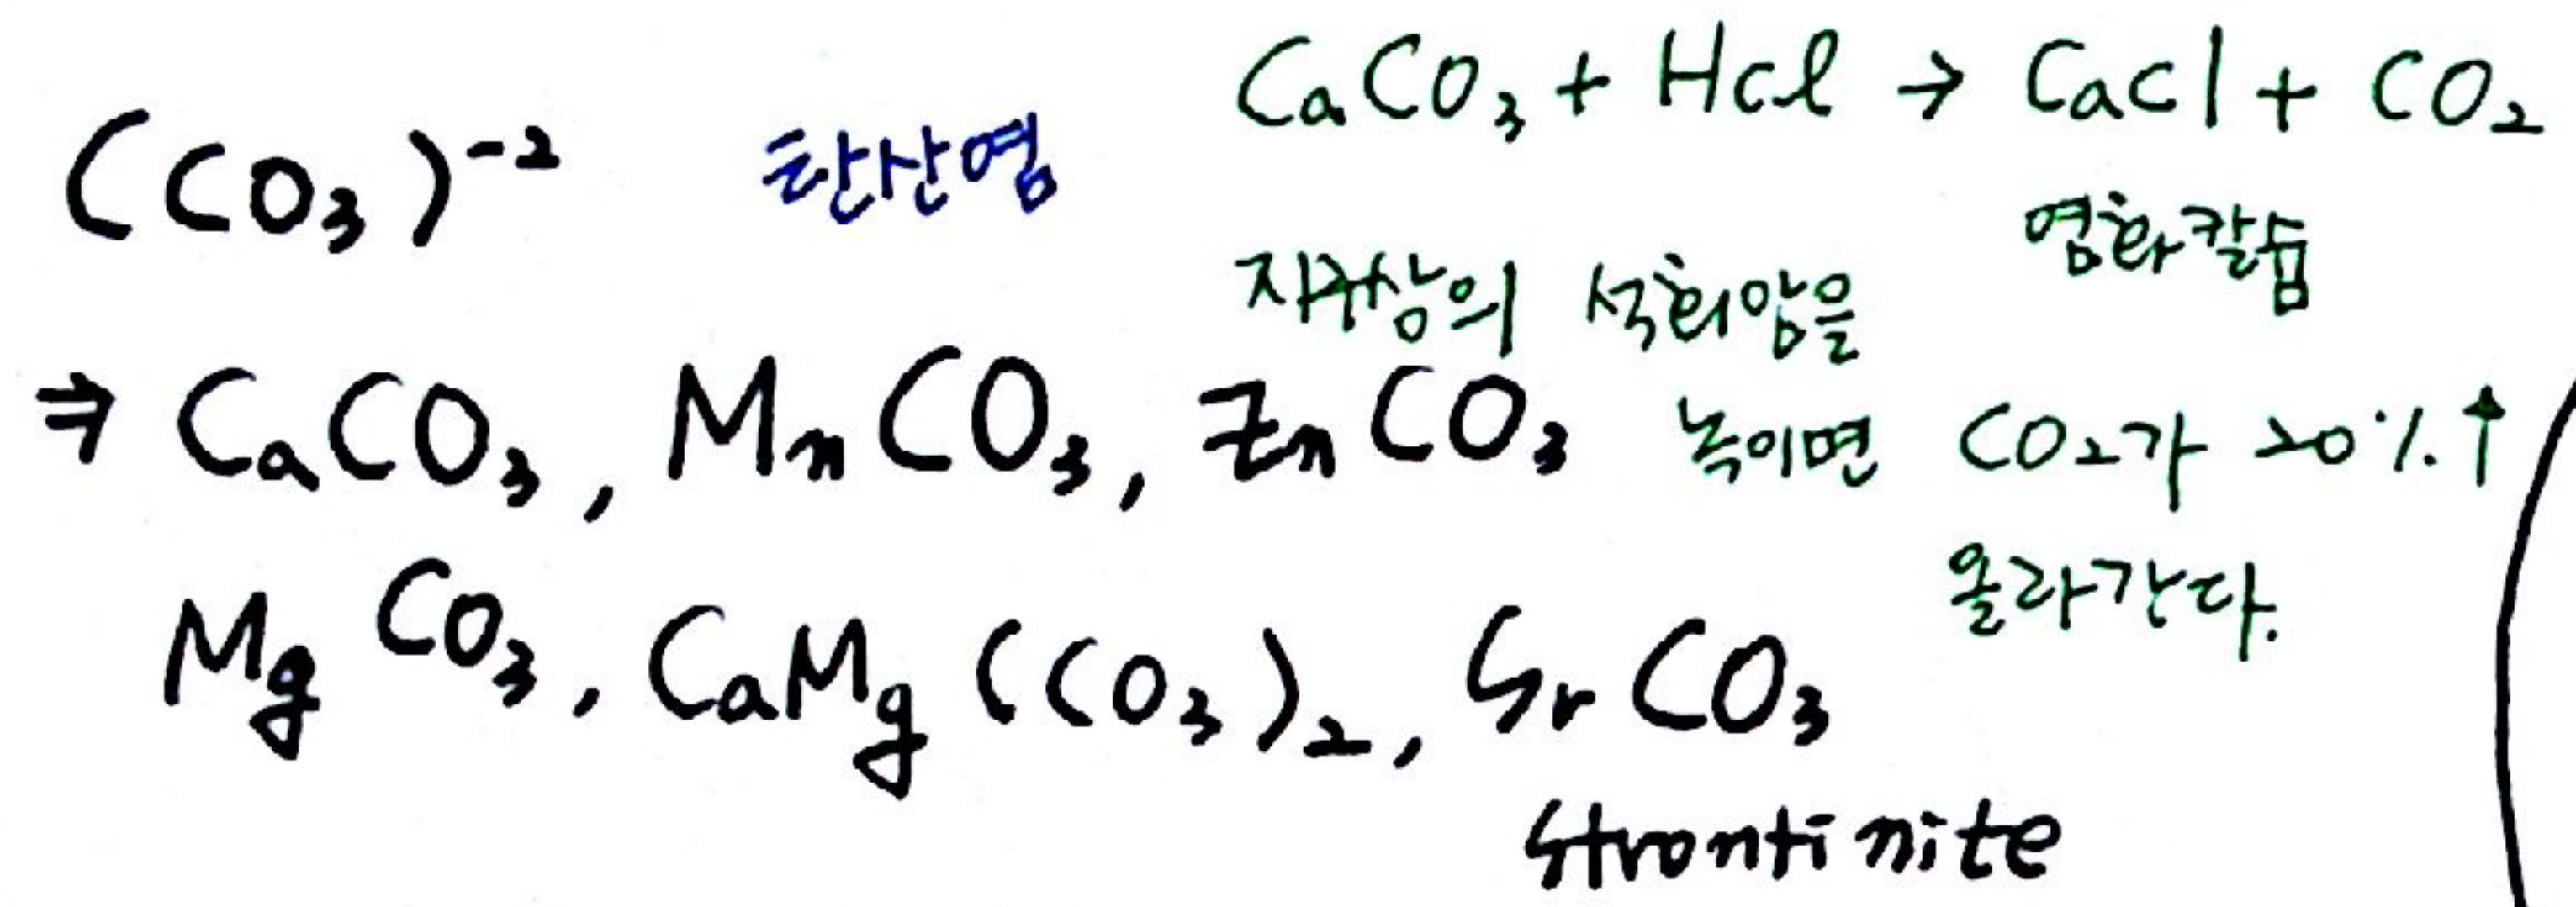 (CO₃)⁻² 탄산염
CaCO₃ + Hcl → CaCl + CO₂
염화칼슘
지구상의 석회암을
녹이면 CO₂가 20% ↑
올라간다.
⇒ CaCO₃, MnCO₃, ZnCO₃
MgCO₃, CaMg(CO₃)₂, SrCO₃
Strontinite